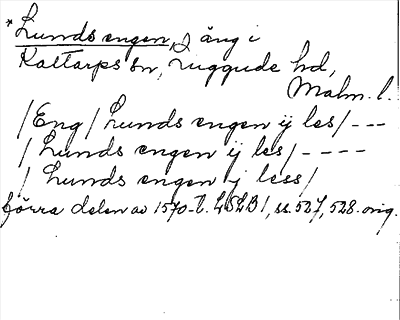 *Lunds engen, äng i
Kattarps sn, Luggude hd,
Malm. l.
/Eng/ Lunds engen ij les/ ---
/ Lunds engen ij les/ ----
/ Lunds engen j less/
förra delen av 1570-t. LSLB 1, ss. 527, 528. orig.